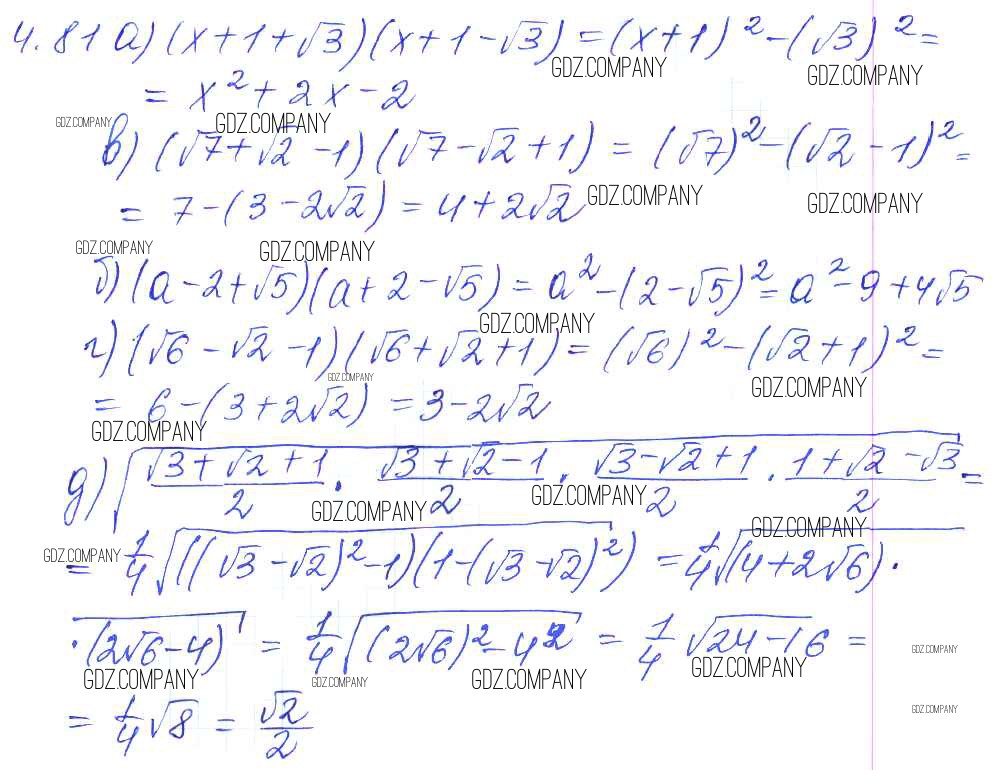 4.81 а) (x+1+√3)(x+1-√3) = (x+1)² - (√3)² =
GDZ.COMPANY GDZ.COMPANY
= x² + 2x - 2
GDZ.COMPANY GDZ.COMPANY
в) (√7+√2 -1)(√7-√2+1) = (√7)² - (√2 - 1)² =
= 7 - (3 - 2√2) = 4 + 2√2
GDZ.COMPANY GDZ.COMPANY
GDZ.COMPANY GDZ.COMPANY
б) (a-2+√5)(a+2-√5) = a² - (2-√5)² = a² - 9 + 4√5
GDZ.COMPANY
г) (√6 - √2 - 1)(√6 + √2 + 1) = (√6)² - (√2+1)² =
GDZ.COMPANY GDZ.COMPANY
= 6 - (3+2√2) = 3 - 2√2
GDZ.COMPANY
д) √((√3+√2+1)/2 · (√3+√2-1)/2 · (√3-√2+1)/2 · (1+√2-√3)/2) =
GDZ.COMPANY GDZ.COMPANY GDZ.COMPANY
GDZ.COMPANY
= 1/4 √(((√3-√2)²-1)(1-(√3-√2)²)) = 1/4 √((4+2√6) ·
· (2√6-4)) = 1/4 √((2√6)² - 4²) = 1/4 √(24-16) =
GDZ.COMPANY GDZ.COMPANY GDZ.COMPANY GDZ.COMPANY GDZ.COMPANY
= 1/4 √8 = √2/2
GDZ.COMPANY